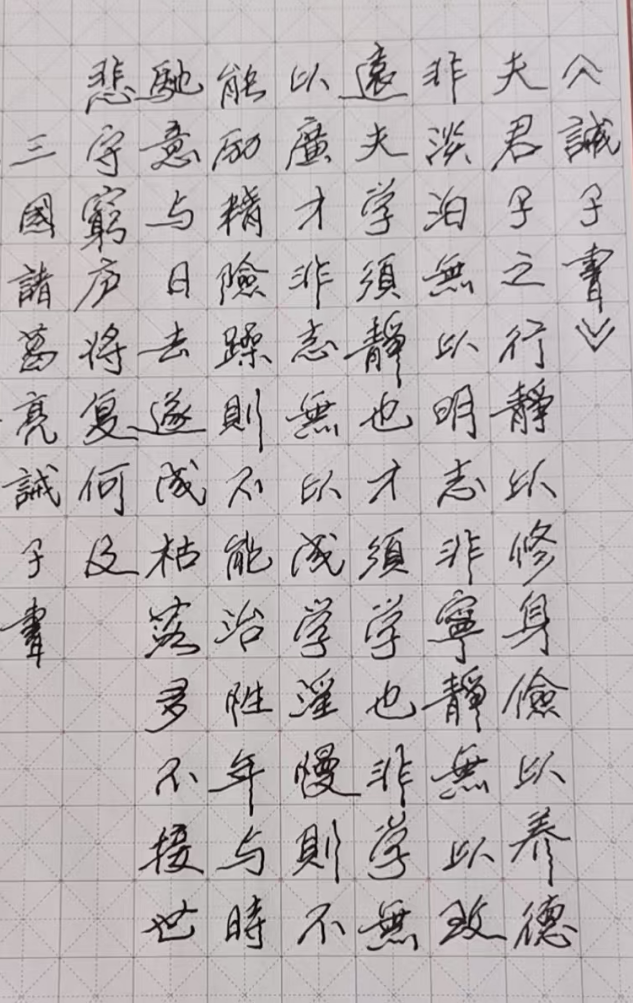 《誡子書》
夫君子之行靜以修身儉以养德
非淡泊無以明志非寧靜無以致
遠夫学須靜也才須学也非学無
以廣才非志無以成学淫慢則不
能励精險躁則不能治性年与時
馳意与日去遂成枯落多不接世
悲守窮庐将复何及
三國諸葛亮誡子書